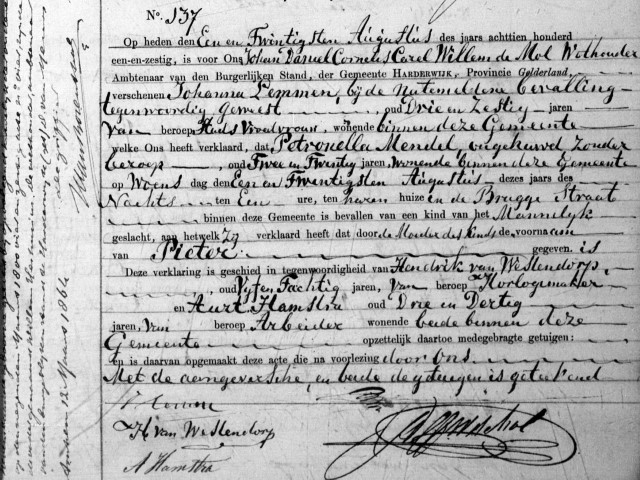 No. 137
Op heden den Een en Twintigsten Augustus des jaars achttien honderd
een-en-zestig, is voor Ons Johan Daniel Cornelis Carel Willem de Mol Wothouder
Ambtenaar van den Burgerlijken Stand, der Gemeente HARDERWIJK, Provincie Gelderland,
verschenen Johanna Lemmen, bij de natemeldene bevalling
tegenwoordig geweest oud Drie en Zestig jaren
van beroep Huis Vroedvrouw, wonende binnen deze Gemeente
welke Ons heeft verklaard, dat Petronella Mendel, ongehuwd zonder
beroep, oud Twee en Twintig jaren, wonende binnen deze Gemeente
op Woens dag den Een en Twintigsten Augustus dezes jaars des
Nachts ten Een ure, ten haren huize in de Brugge Straat
binnen deze Gemeente is bevallen van een kind van het Mannelijk
geslacht, aan hetwelk zij verklaard heeft dat door de Moeder des kinds de voornaam
van Pieter gegeven. is
Deze verklaring is geschied in tegenwoordigheid van Hendrik van Westendorp,
oud Vijf en Tachtig jaren, van beroep Horlogemaker
en Aart Hamstra oud Drie en Dertig
jaren, van beroep Arbeider wonende beide binnen deze
Gemeente opzettelijk daartoe medegebragte getuigen:
en is daarvan opgemaakt deze acte die na voorlezing door Ons
Met de aangeversche, en beide de getuigen is geteekend
H. van Westendorp
A Hamstra
12 Maart 1864